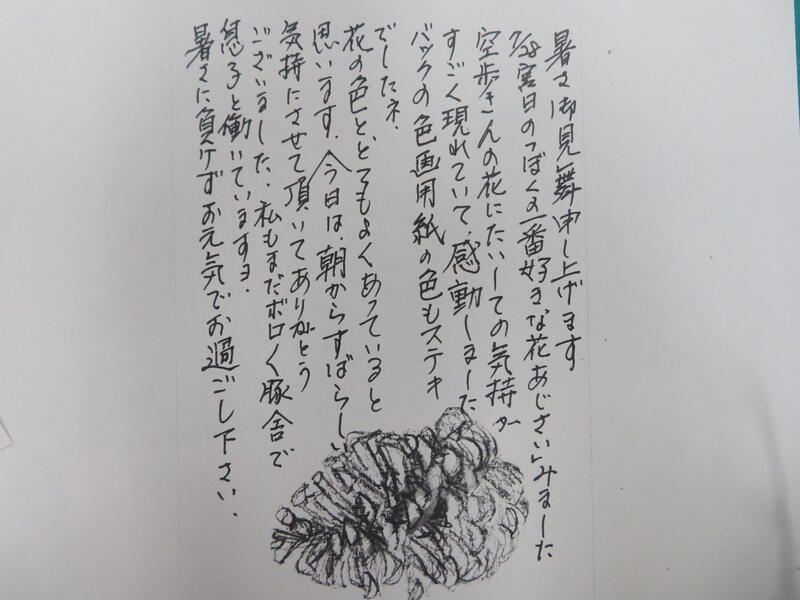 暑さ御見舞申し上げます
7/28宮日の「ぼくの一番好きな花あじさい」みました
空歩さんの花にたいしての気持が
すごく現れていて、感動しました
バックの色画用紙の色もステキ
でしたネ.
花の色と、とてもよくあっていると
思います. 今日は、朝からすばらしい
気持にさせて頂いてありがとう
ございました. 私もまだボロく豚舎で
息子と働いていますヨ.
暑さに負けずお元気でお過ごし下さい.